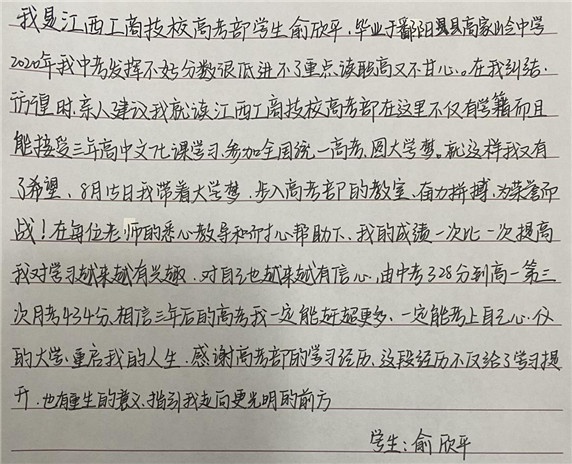 我是江西工商技校高考部学生俞欣平，毕业于鄱阳县高家岭中学
2020年我中考发挥不好分数很低进不了重点读职高又不甘心。在我纠结、
彷徨时，亲人建议我就读江西工商技校高考部在这里不仅有学籍而且
能接受三年高中文化课学习，参加全国统一高考，圆大学梦。就这样我又有
了希望，8月15日我带着大学梦，步入高考部的教室，奋力拼搏，为荣誉而
战！在每位老师的悉心教导和耐心帮助下、我的成绩一次比一次提高
我对学习越来越有兴趣，对自己也越来越有信心，由中考328分到高一第三
次月考434分，相信三年后的高考我一定能赶超更多、一定能考上自己心仪
的大学、重启我的人生，感谢高考部的学习经历，这段经历不仅给了学习提
升，也有重生的意义，指引我走向更光明的前方
学生：俞欣平